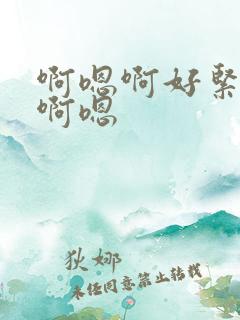 啊嗯啊好緊
啊嗯
狄娜
未经同意禁止转载